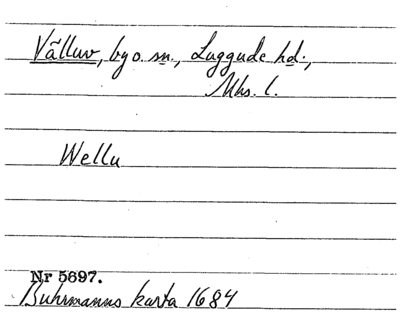 Välluv, by o. sn., Luggude hd.,
Mhs. l.
Wellu
Nr 5697.
Buhrmanns karta 1684